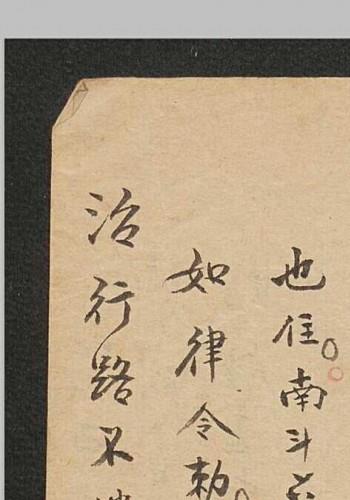 也住南斗
如律令勅
治行路不